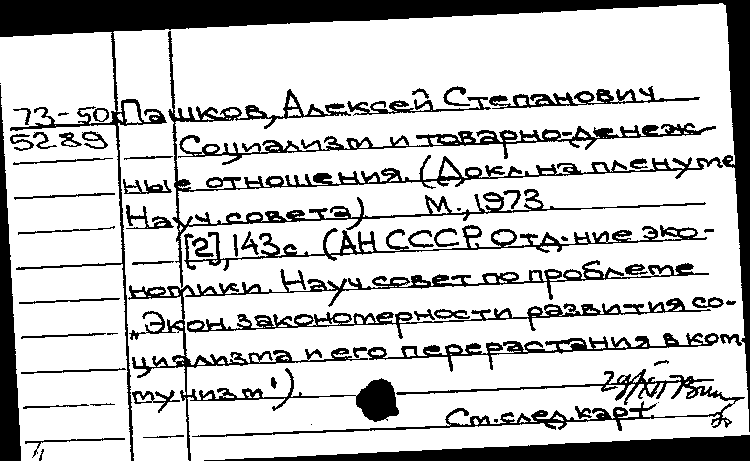 73-50 Пашков, Алексей Степанович.
5289 Социализм и товарно-денеж-
ные отношения. (Докл. на пленуме
Науч. совета) М., 1973.
[2], 143с. (АН СССР. Отд-ние эко-
номики. Науч. совет по проблеме
„Экон. закономерности развития со-
циализма и его перерастания в ком-
мунизм").
См. след. карт.